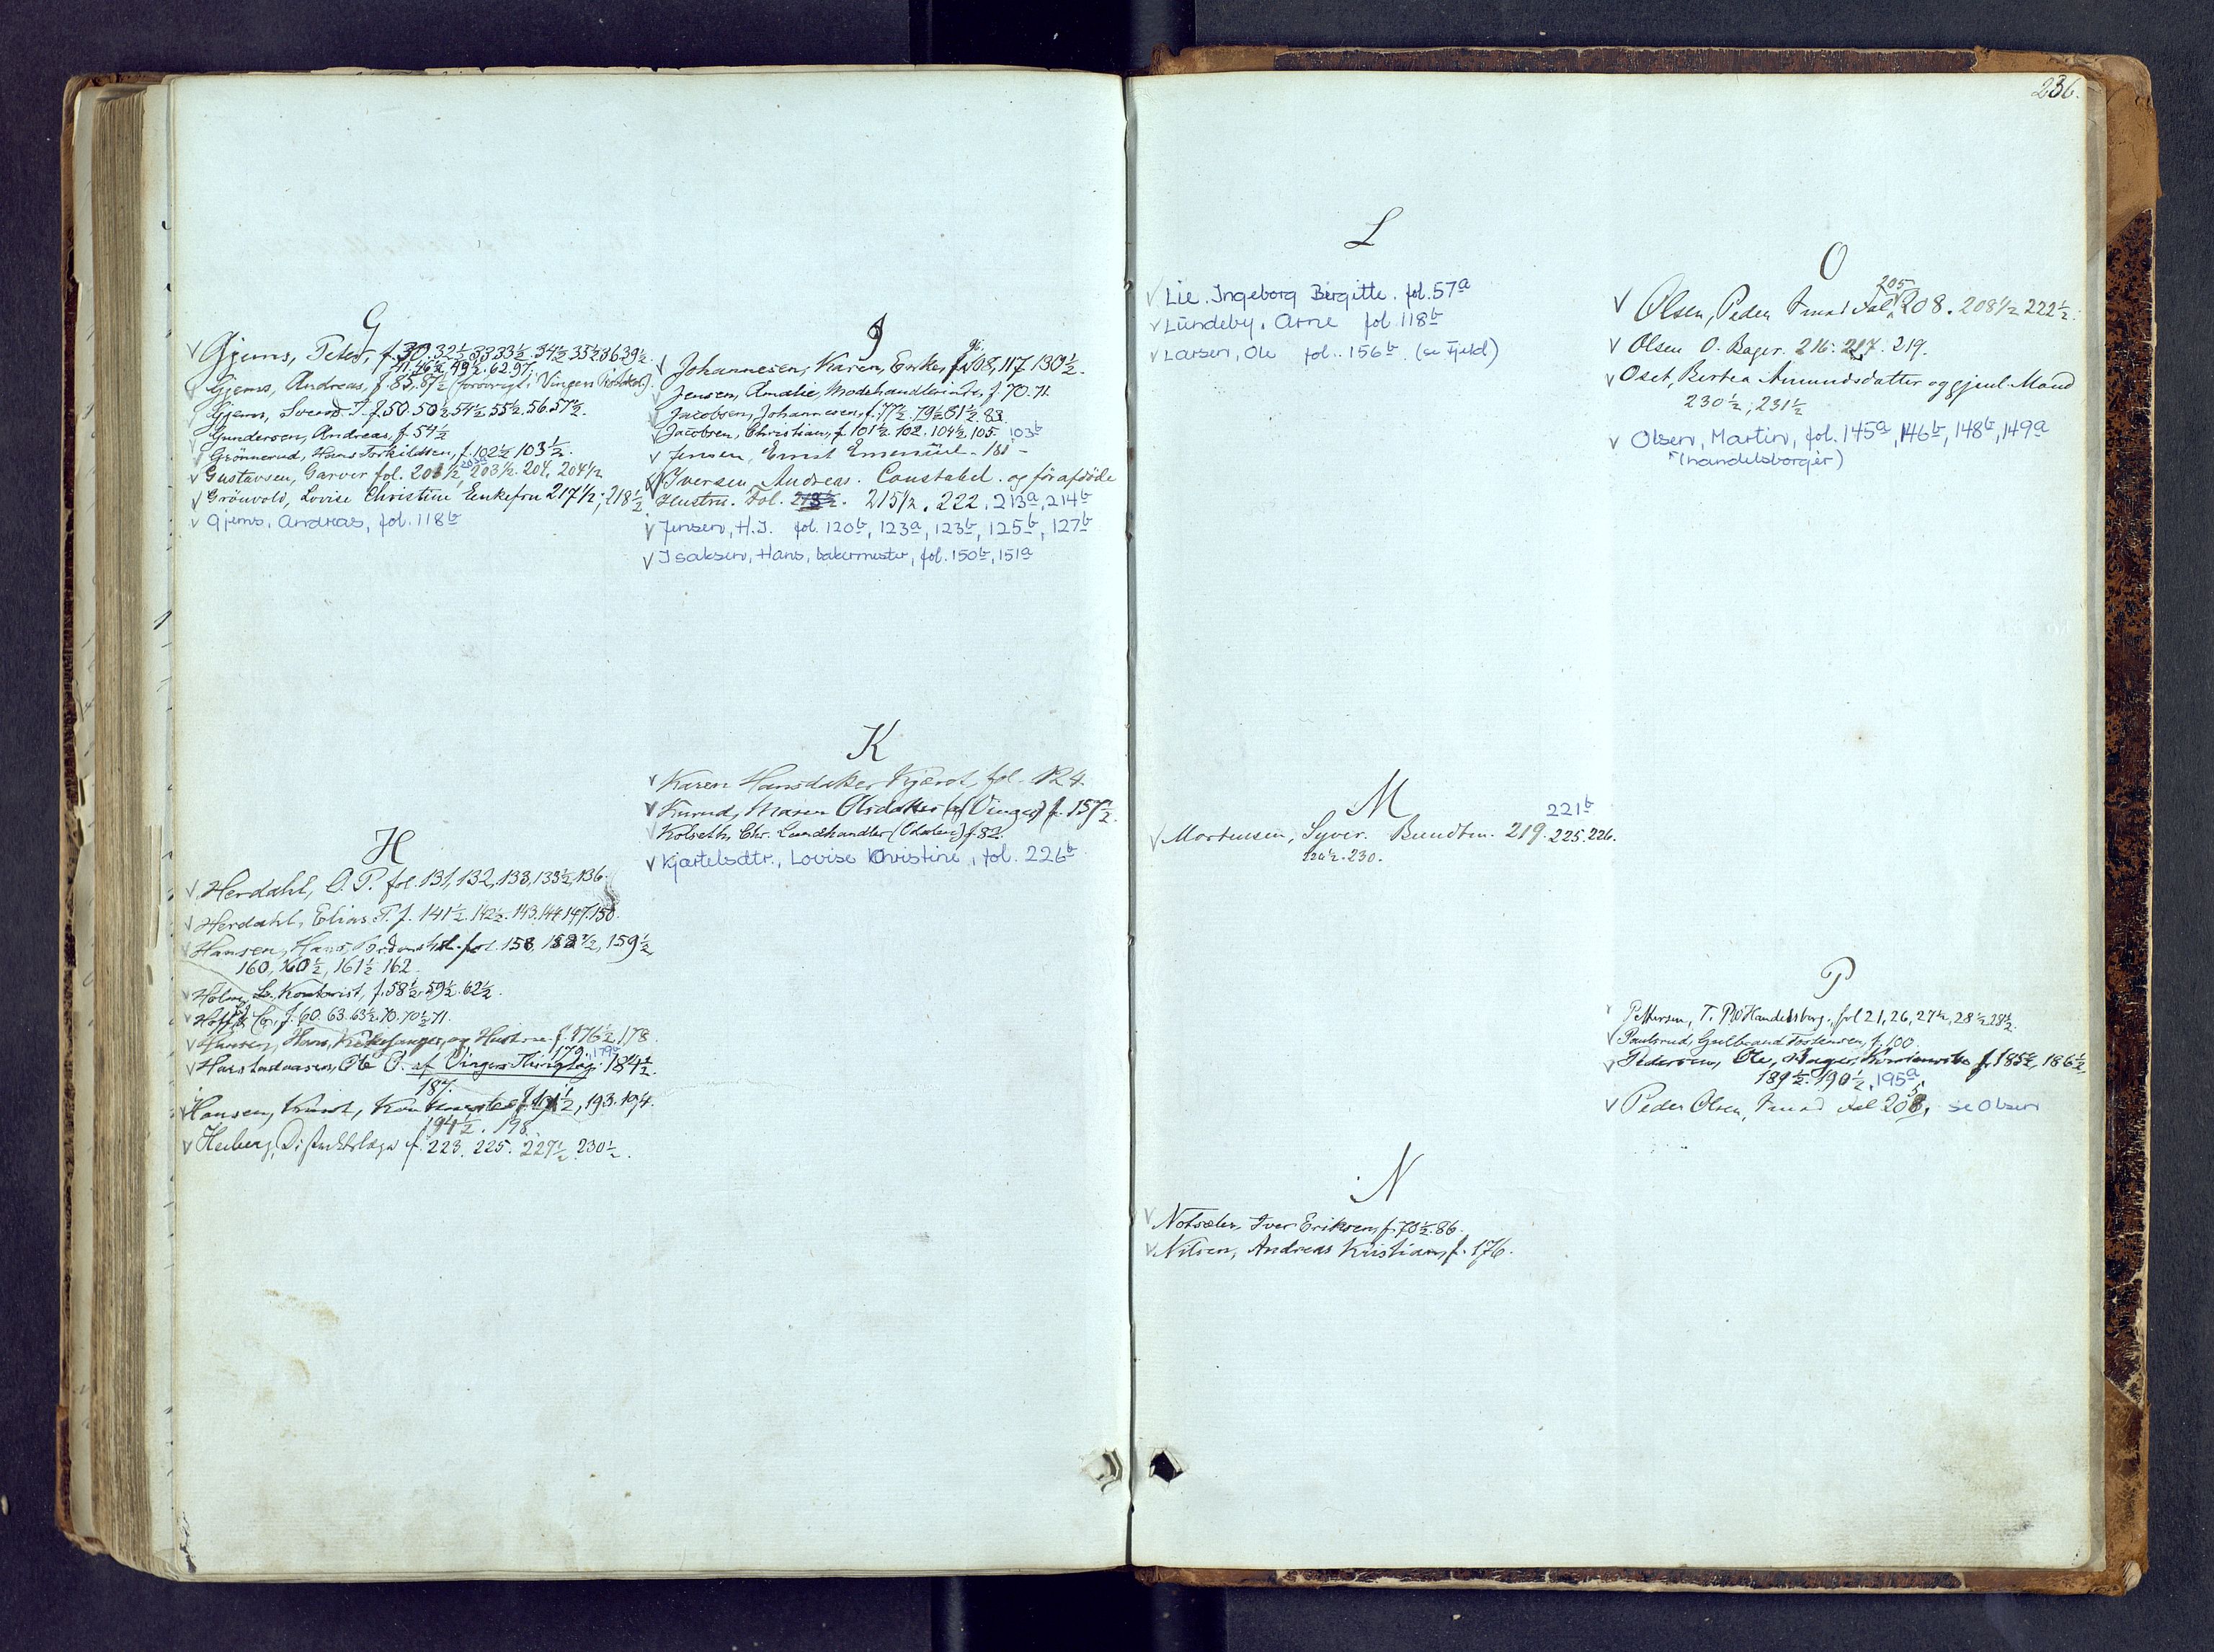 G
√ Gjems, Peter, f. 30. 32½ 33 33½. 34½ 35½ 36 39½.
41. 46½ 49½. 62. 97.
√ Gjems, Andreas, f. 85, 87½ (forövrigt i Vingers Protokol).
√ Gjems, Svend. T. f. 50. 50½ 54½ 55½. 56. 57½.
√ Gundersen, Andreas, f. 54½
√ Grönnerud, Hans Torkildsen, f. 102½ 103½.
√ Gustavsen, Garver fol. 201½, 203a, 203½. 204. 204½
√ Grönvold, Lovise Christine Enkefru 217½; 218½
√ Gjems, Andreas, fol. 118b
H
√ Herdahl, O. P. fol. 131, 132, 133, 133½, 136.
√ Herdahl, Elias T. f. 141½. 142½. 143. 144 147. 150.
√ Hansen, Hans, fol. 158, 158½, 159½,
160, 160½, 161½ 162.
√ Holm, L. Kontorist, f. 58½. 59½. 62½.
√ Hoff & Co, f. 60. 63. 63½. 70. 70½ 71.
√ Hansen, Hans, Kirkesanger, og Hustru f. 176½. 178
179., 179b
√ Harstadaasen, Ole O. af Vingers Thinglag. 184½.
187.
√ Hansen, Knud, f. 191½, 193. 194.
194½. 198.
√ Heiberg, Distriktslæge f. 223. 225. 227½ 230½.
J
√ Johannesen, Karen, Enke, f. 96. 108, 117. 130½.
√ Jensen, Amalie, Modehandlerinde, f. 70. 71.
√ Jacobsen, Johannesen, f. 77½. 79½ 81½. 83.
√ Jacobsen, Christian, f. 101½. 102. 104½, 105. 103b
√ Jensen, Ernst Emanuel - 181 -
√ Iversen Andreas. Constabel. og før afdöde
Hustru. Fol. 213½. 215½. 222, 213a, 214b
√ Jensen, H.J. fol. 120b, 123a, 123b, 125b, 127b
√ Isaksen, Hans, bakermester, fol. 150b, 151a
K
√ Karen Hansdatter Kjærot, fol. 124.
√ Knrud, Maren Olsdatter (af Vinger) f. 157½.
√ Kolseth, Chr. Landhandler (Odalen) f. 82.
√ Kjærtelsdtr., Lovise Kristine, fol. 226b
236.
L
√ Lie. Ingeborg Birgitte. fol. 57a
√ Lundeby. Arne fol. 118b
√ Larsen, Ole fol. 156b. (se Fjeld)
M
221b
√ Mortensen, Syver. Bundtm. 219. 225. 226.
220½. 230.
N
√ Notsæter, Iver Eriksen, f. 70½. 86.
√ Nilsen, Andreas Kristian, f. 176.
O
205
√ Olsen, Peder Smed Fol. 208. 208½ 222½.
√ Olsen O. Bager. 216. 217. 219.
√ Oset, Berthea Amundsdatter og gjenl. Mand
230½; 231½
√ Olsen, Martin, fol. 145a, 146b, 148b, 149a
(handelsborger)
P
√ Pettersen, T. P. Handelsborg., fol 21, 26, 27½, 28½ 28½.
√ Paulsrud, Gulbrand Torstensen, f. 100.
√ Pedersen, Ole, Bager, f. 185½, 186½,
189½. 190½, 195a
√ Peder Olsen, Smed Fol 205, se Olsen